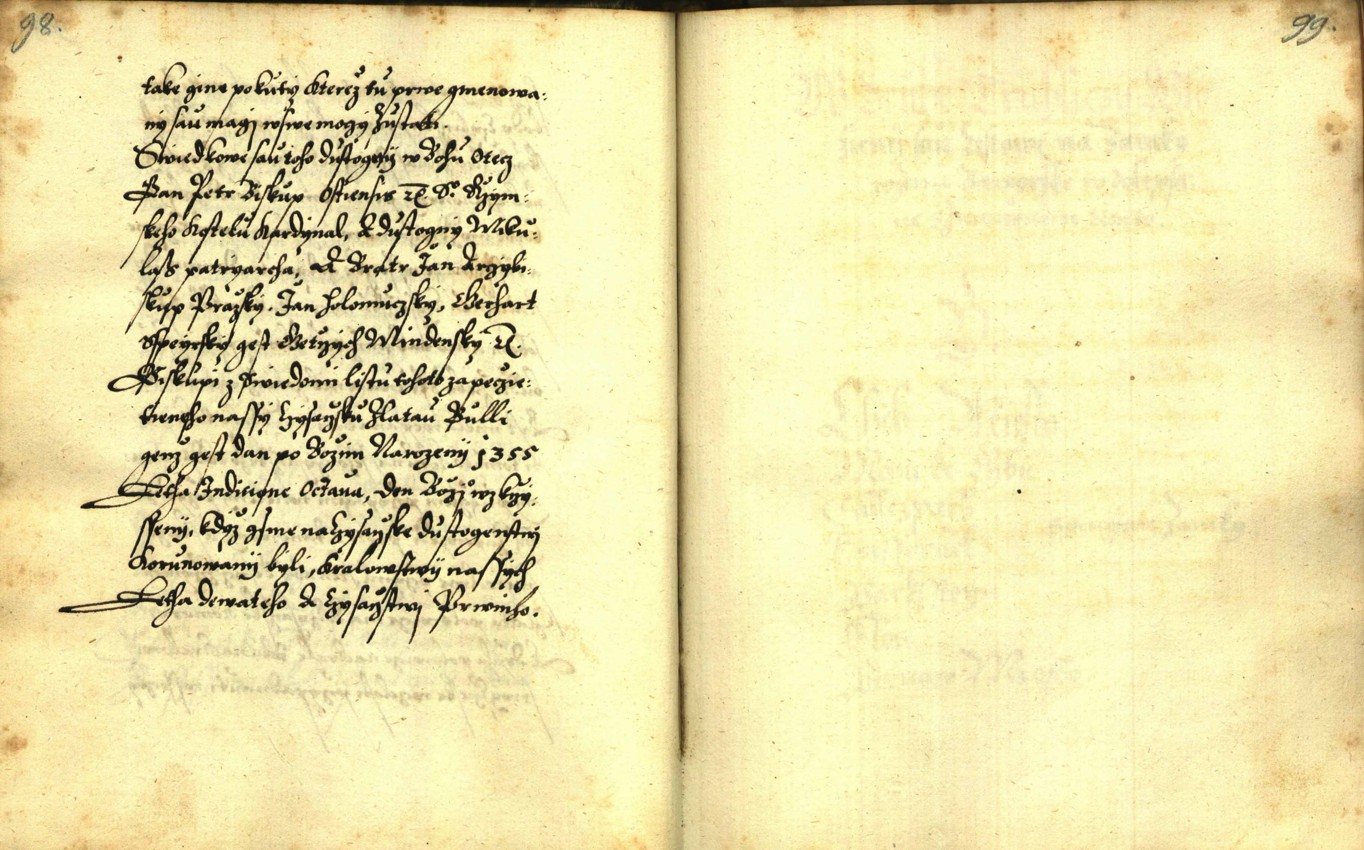 98.
take gine pokuty kterez tu prwe gmenowa:
ny sau magj w swe mozy zustati.
Swiedkowe sau toho dustogny w Bohu Otecz
Pan Petr Biskup Ostiensis ꝛc. So. Rzym:
skeho Kostelu Kardynal, A dustogny Miku:
lass patryarcha, A Bratr Jan Arczybi:
skup Prazsky. Jan Holomuczsky, Gerhart
Sspeyrsky gest Getrzych Mindensky ꝛc.
Biskupi z Swiedomi listu tohoto zapeczie:
tieneho nassy Czysarzsku Zlatau Bulli
genz gest dan po Bozim Narozeny 1355
Letha Indictione Octaua, den Bozj wzkrzy:
sseny, kdyz gsme na Czysarzske dustogenstwj
Korunowany byli, Kralowstwy nassych
Letha dewateho A Czysarzstwj Prwniho.
99.